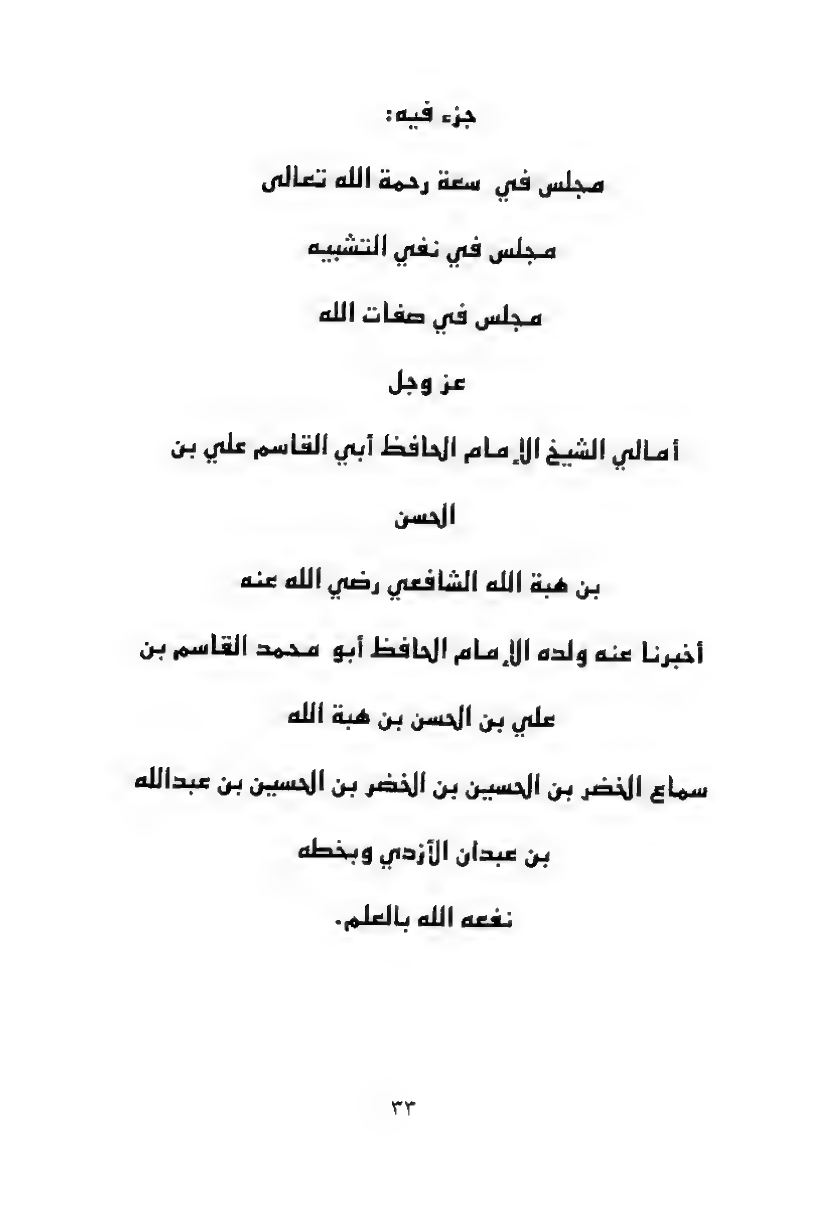 جزء فيه:
مجلس في سعة رحمة الله تعالى
مجلس في نفي التشبيه
مجلس في صفات الله
عز وجل
أمالي الشيخ الإمام الحافظ أبي القاسم علي بن
الحسن
بن هبة الله الشافعي رضي الله عنه
أخبرنا عنه ولده الإمام الحافظ أبو محمد القاسم بن
علي بن الحسن بن هبة الله
سماع الخضر بن الحسين بن الخضر بن الحسين بن عبدالله
بن عبدان الأزدي وبخطه
نفعه الله بالعلم.
٣٣